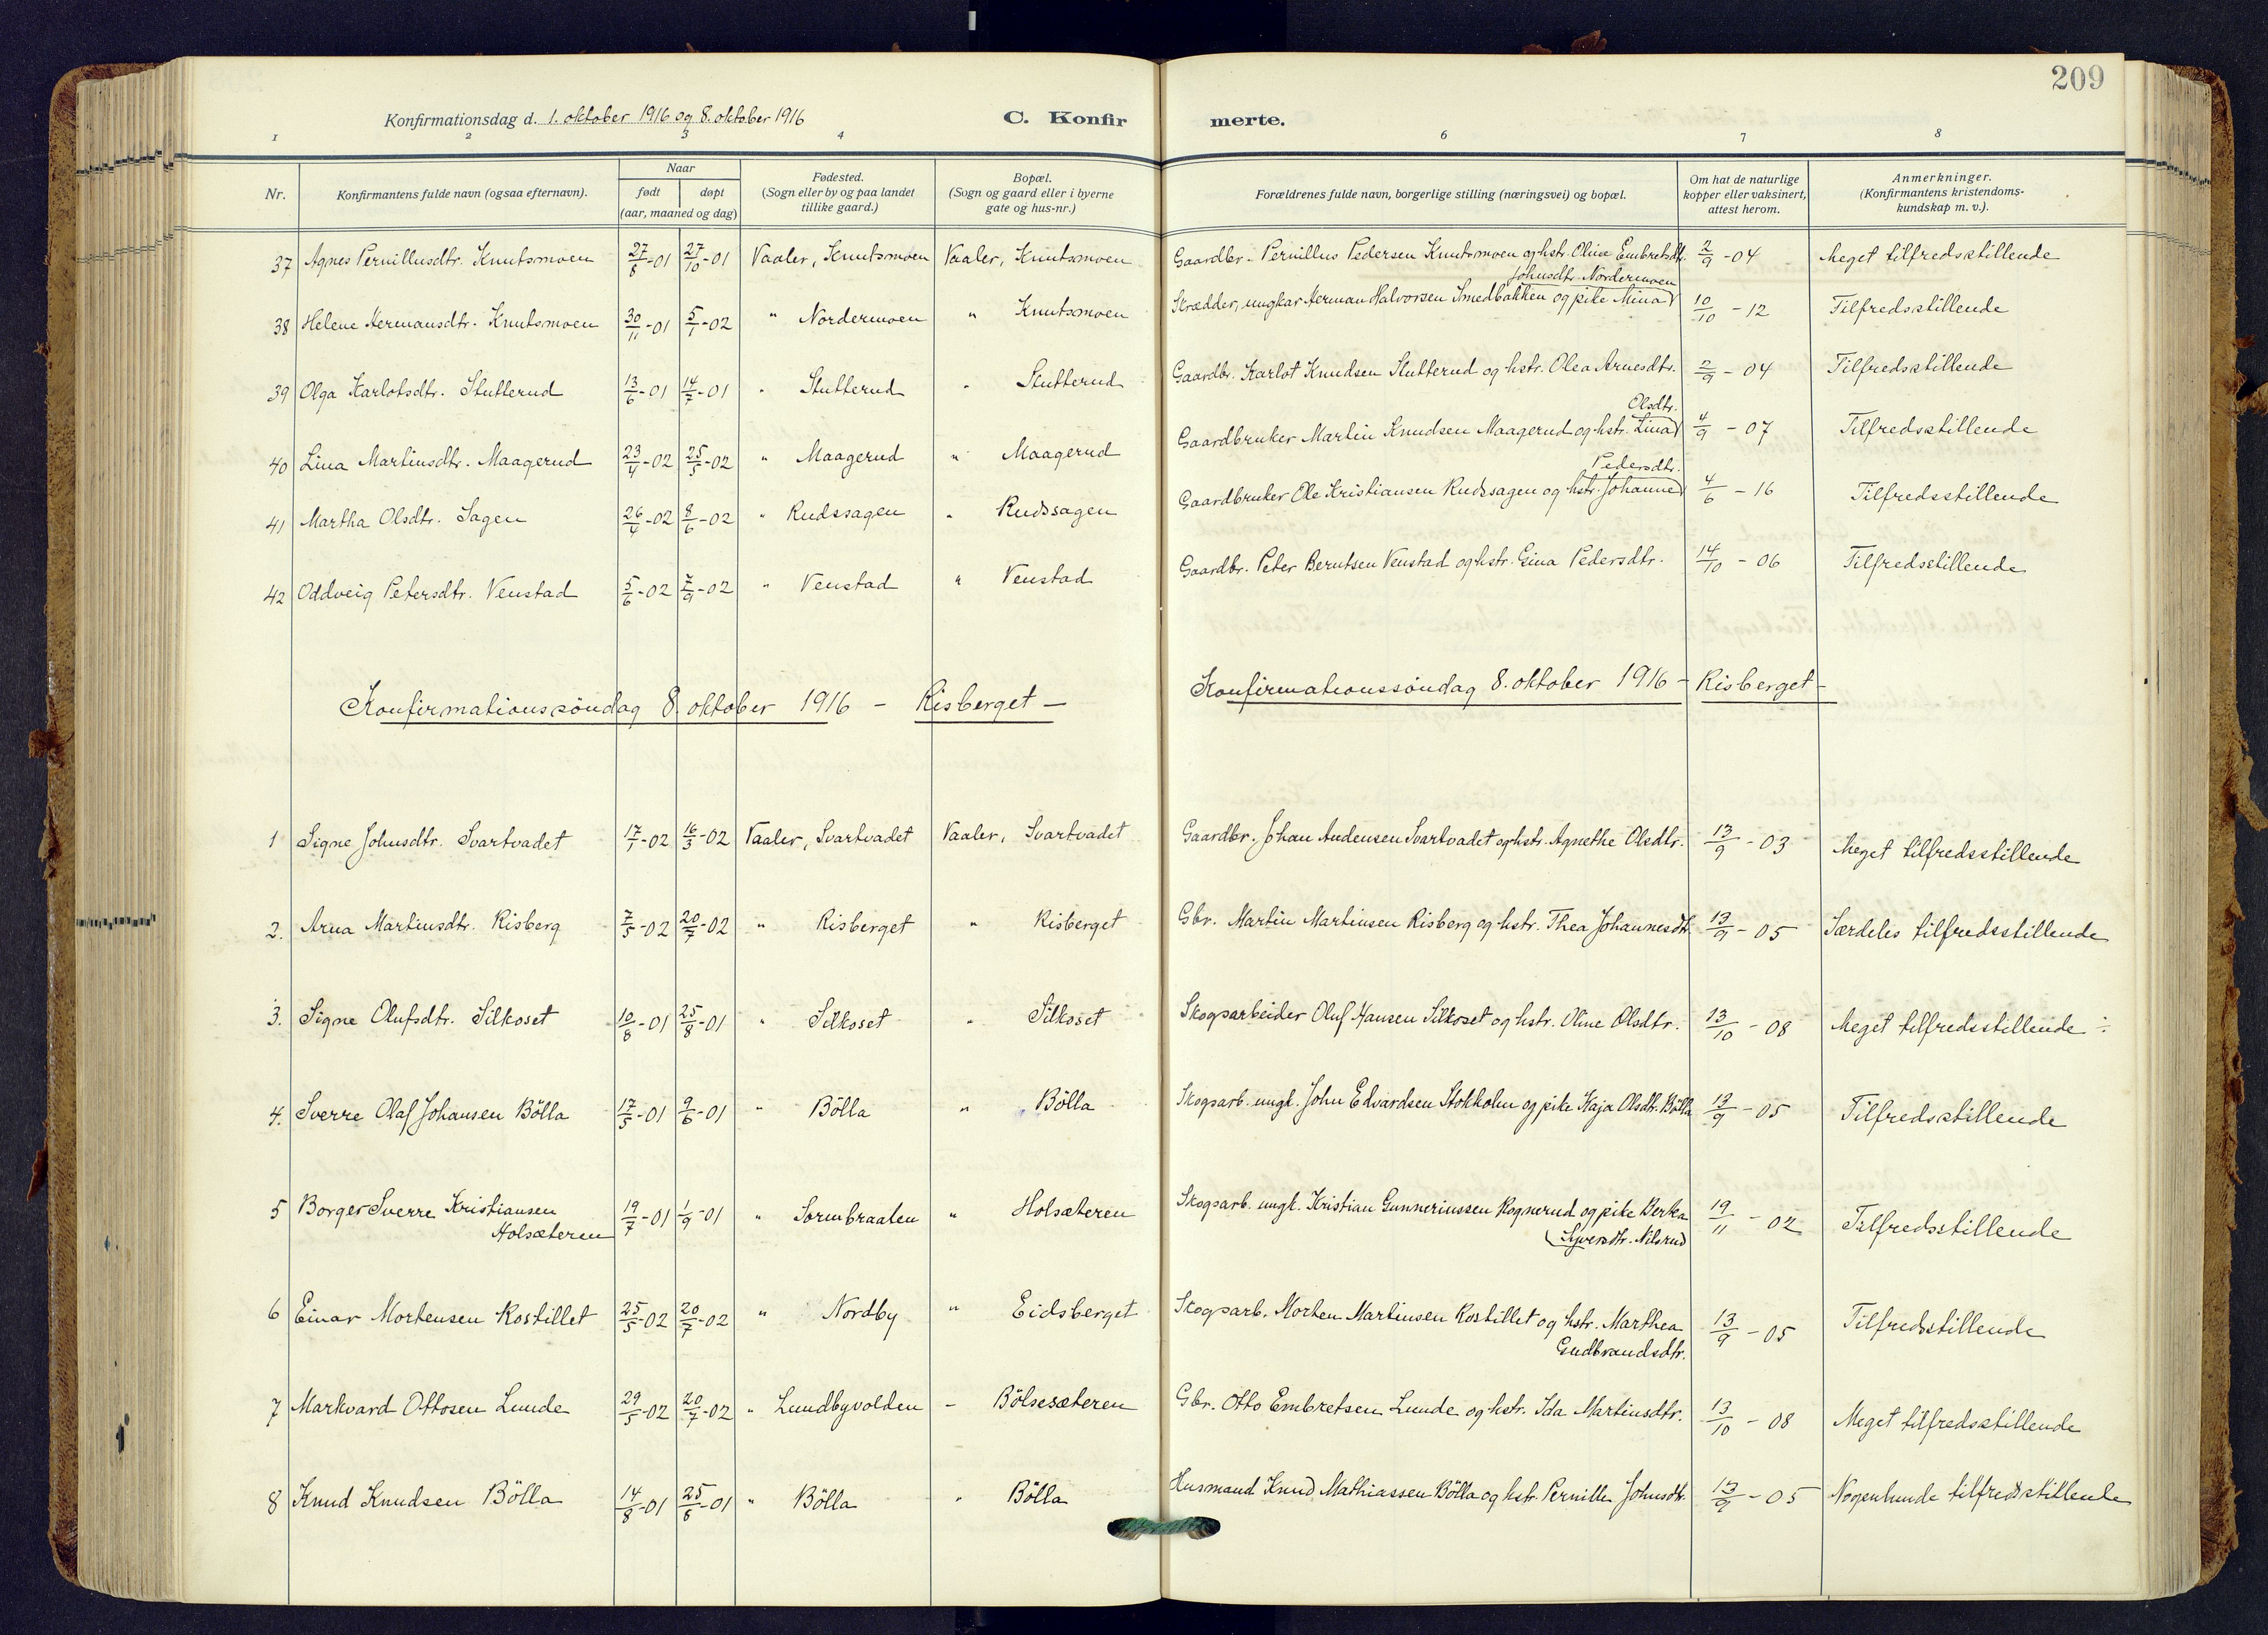 209
Konfirmationsdag d. 1. oktober 1916 og 8. oktober 1916
C. Konfir merte.
1 2 3 4 6 7 8
Nr. Konfirmantens fulde navn (ogsaa efternavn). Naar født døpt (aar, maaned og dag) Fødested. (Sogn eller by og paa landet tillike gaard.) Bopæl. (Sogn og gaard eller i byerne gate og hus-nr.) Forældrenes fulde navn, borgerlige stilling (næringsvei) og bopæl. Om hat de naturlige kopper eller vaksinert, attest herom. Anmerkninger. (Konfirmantens kristendoms-kundskap m. v.).
37 Agnes Pernillusdtr. Knutsmoen 27/8-01 27/10-01 Vaaler, Knutsmoen Vaaler, Knutsmoen Gaardbr. Pernillus Pedersen Knutsmoen og hstr. Oline Embretsdtr. 2/9-04 Meget tilfredsstillende
38 Helene Hermansdtr. Knutsmoen 30/11-01 5/1-02 " Nordermoen " Knutsmoen Skrædder, ungkar Herman Halvorsen Smedbakken og pike Mina Johnsdtr. Nordermoen 10/10-12 Tilfredsstillende
39 Olga Karlotsdtr. Slutterud 13/6-01 14/7-01 " Slutterud " Slutterud Gaardbr. Karlot Knudsen Slutterud og hstr. Olea Arnesdtr. 2/9-04 Tilfredsstillende
40 Lina Martinsdtr. Maagerud 23/4-02 25/5-02 " Maagerud " Maagerud Gaardbruker Martin Knudsen Maagerud og hstr. Lina Olsdtr. 4/9-07 Tilfredsstillende
41 Martha Olsdtr. Sagen 26/4-02 8/6-02 " Rudssagen " Rudssagen Gaardbruker Ole Kristiansen Rudssagen og hstr. Johanne Pedersdtr. 4/6-16 Tilfredsstillende
42 Oddveig Petersdtr. Venstad 5/6-02 7/9-02 " Venstad " Venstad Gaardbr. Peter Berntsen Venstad og hstr. Gina Pedersdtr. 14/10-06 Tilfredsstillende
Konfirmationssöndag 8. oktober 1916 - Risberget -
Konfirmationssöndag 8. oktober 1916 - Risberget -
1 Signe Johnsdtr. Svartvadet 17/1-02 16/3-02 Vaaler, Svartvadet Vaaler, Svartvadet Gaardbr. Johan Audensen Svartvadet og hstr. Agnethe Olsdtr. 13/9-03 Meget tilfredsstillende
2. Arna Martinsdtr. Risberg 7/5-02 20/7-02 " Risberget " Risberget Gbr. Martin Martinsen Risberg og hstr. Thea Johannesdtr. 13/9-05 Særdeles tilfredsstillende
3. Signe Olufsdtr. Silkoset 10/8-01 25/8-01 " Silkoset " Silkoset Skogsarbeider Oluf Hansen Silkoset og hstr. Oline Olsdtr. 13/10-08 Meget tilfredsstillende ÷
4. Sverre Olaf Johansen Bölla 17/5-01 9/6-01 " Bölla " Bölla Skogsarb. ungk. John Edvardsen Stokholm og pike Kaja Olsdtr. Bölla 13/9-05 Tilfredsstillende
5 Borger Sverre Kristiansen Holsæteren 19/7-01 1/9-01 " Sormbraaten " Holsæteren Skogsarb. ungk. Kristian Gunneriussen Rognerud og pike Berta Syversdtr. Nilsrud 19/11-02 Tilfredsstillende
6 Einar Mortensen Rostillet 25/5-02 20/7-02 " Nordby " Eidsberget Skogsarb. Morten Martinsen Rostillet og hstr. Marthea Gudbrandsdtr. 13/9-05 Tilfredsstillende
7 Markvard Ottosen Lunde 29/5-02 20/7-02 " Lundbyvolden - Bölsesæteren Gbr. Otto Embretsen Lunde og hstr. Ida Martinsdtr. 13/10-08 Meget tilfredsstillende
8 Knud Knudsen Bölla 14/8-01 25/8-01 " Bölla " Bölla Husmand Knud Mathiassen Bölla og hstr. Pernille Johnsdtr. 13/9-05 Nogenlunde tilfredsstillende